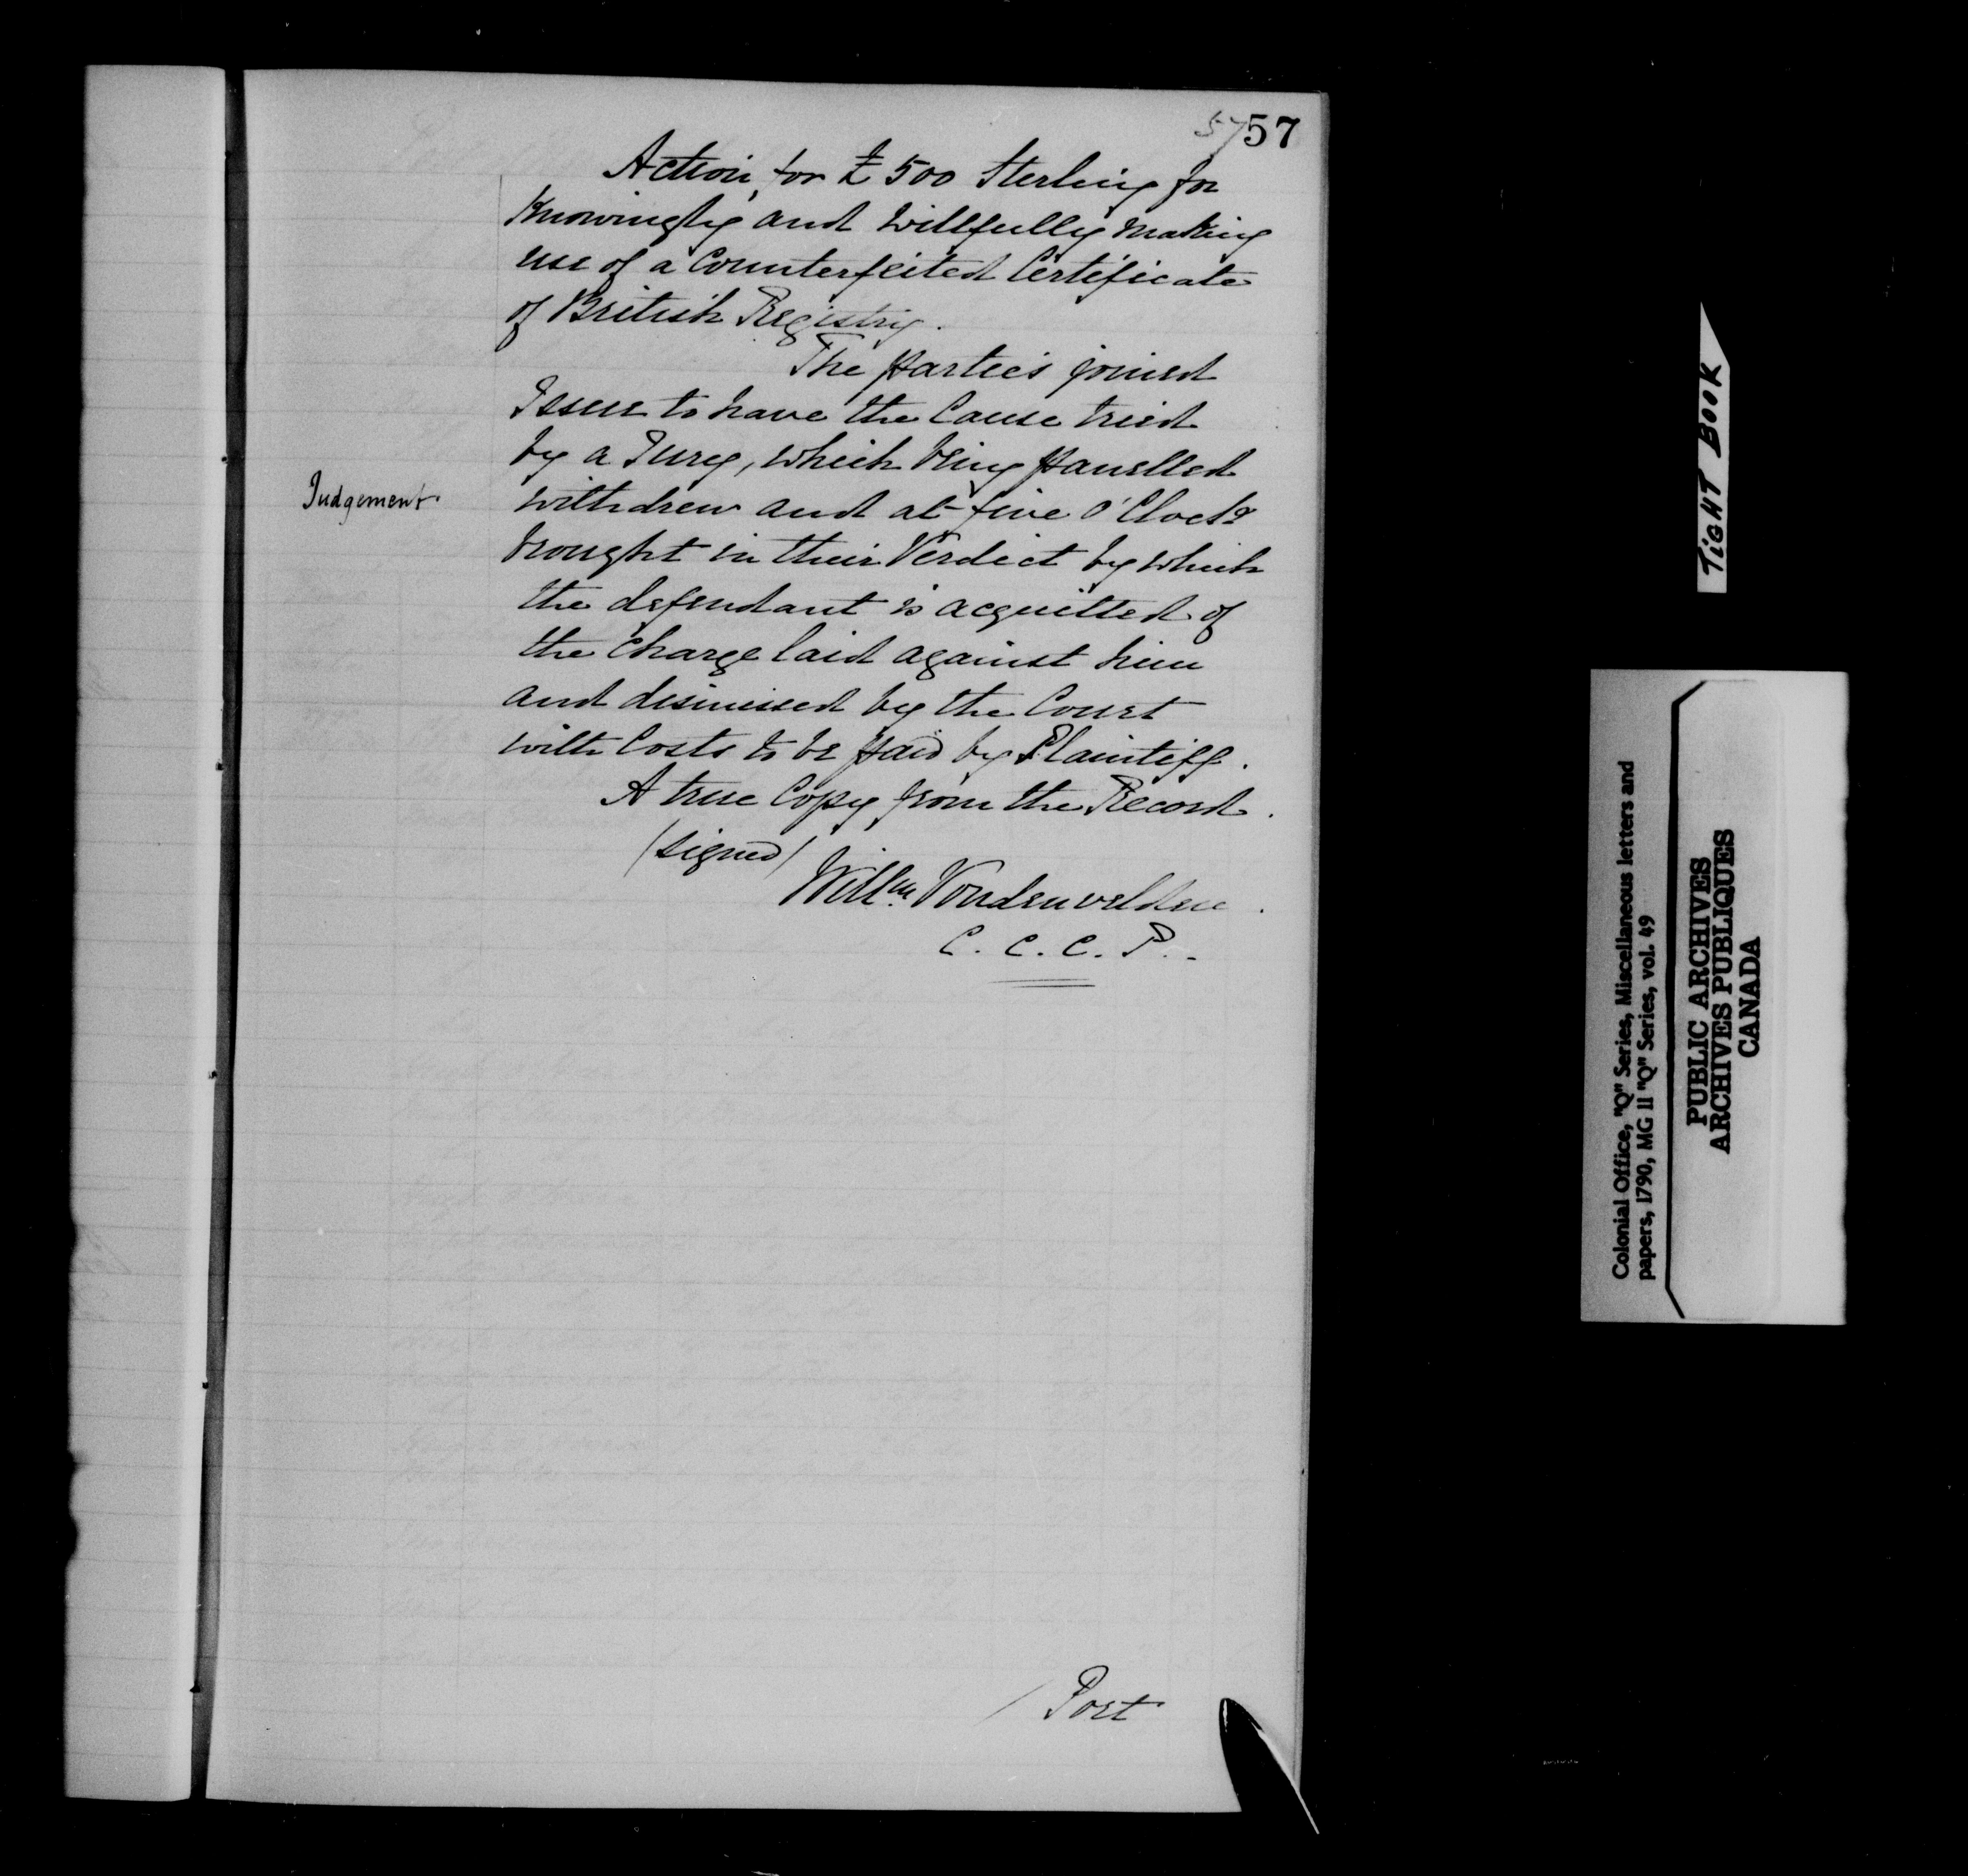 57 57
Action, for £500 Sterling for
Knowingly and Willfully making
use of a Counterfeited Certificate
of British Registry.
The parties joined
Issue to have the Cause tried
by a Jury, which being panelled
Judgement. withdrew and at five O'Clock
brought in their Verdict by which
the defendant is acquitted of
the Charge laid against him
and dismissed by the Court
with Costs to be paid by Plaintiff.
A true Copy from the Record.
(signed)
Willm. Vondenvelden.
C. C. C. P.
/ Port
TIGHT BOOK
Colonial Office, "Q" Series, Miscellaneous letters and
papers, 1790, MG 11 "Q" Series, vol. 49
PUBLIC ARCHIVES
ARCHIVES PUBLIQUES
CANADA